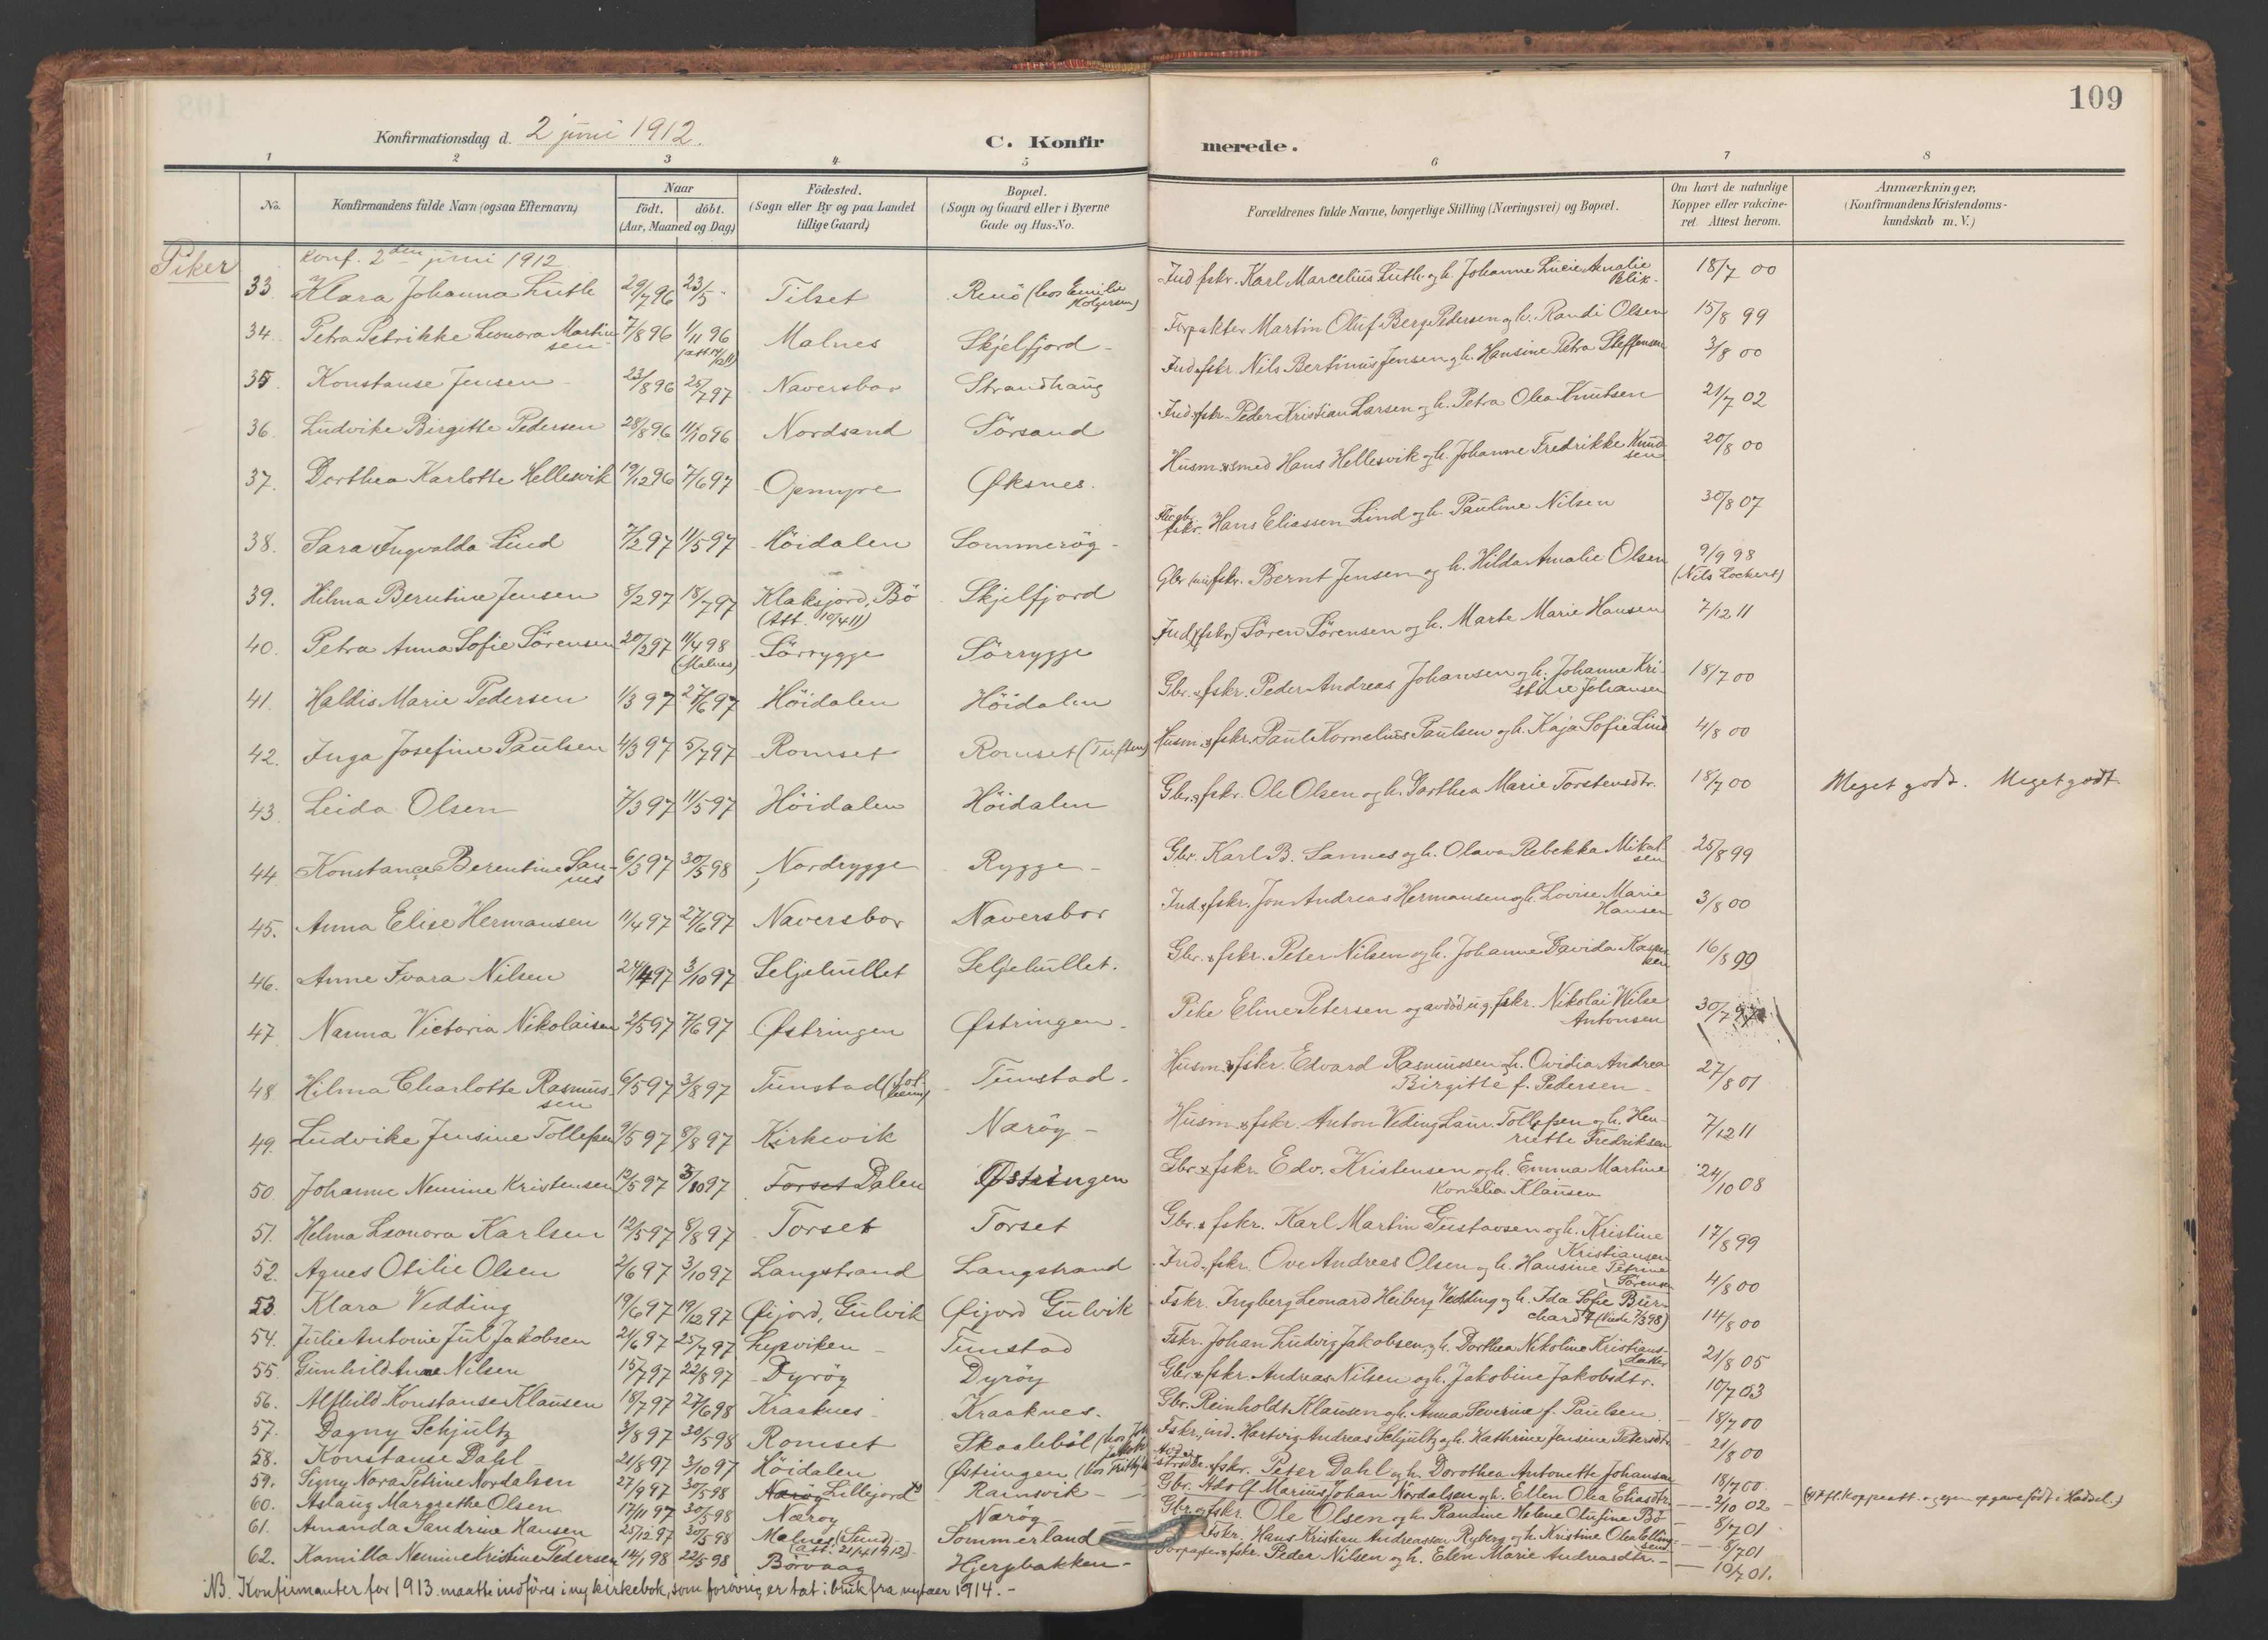 109
Konfirmationsdag d. 2 juni 1912.
C. Konfirmerede.
1 2 3 4 5 6 7 8
No.
Konfirmandens fulde Navn (ogsaa Efternavn)
Naar
født. døbt.
(Aar, Maaned og Dag)
Födested.
(Sogn eller By og paa Landet
tillige Gaard)
Bopæl.
(Sogn og Gaard eller i Byerne
Gade og Hus-No.
Forældrenes fulde Navne, borgerlige Stilling (Næringsvei) og Bopæl.
Om havt de naturlige
Kopper eller vakcine-
ret. Attest herom.
Anmærkninger.
(Konfirmandens Kristendoms-
kundskab m. V.)
Piker
Konf. 2den juni 1912
33. Klara Johanna Luth 29/7 96 23/5 Tilset Renö (hos Emilie Holgersen) Ind fskr. Karl Marcelius Luth og h. Johanne Lucie Amalie Blik. 18/7 00
34. Petra Petrikke Leonora Martinsen 7/8 96 1/11 96 Malnes Skjelfjord Forpakter Martin Oluf Berg Pedersen og h. Randi Olsen 15/8 99
35. Konstanse Jensen 23/8 96 25/7 97 Naversbor Strandhaug Ind. fskr. Nils Bertinus Jensen og h. Hansine Petra Steffensen 3/8 00
36. Ludvike Birgitte Pedersen 28/8 96 11/10 96 Nordsand Sörsand Ind. fskr. Peder Kristian Larsen og h. Petra Olea Knutsen 21/7 02
37. Dorthea Karlotte Hellesvik 19/12 96 7/6 97 Opmyre Øksnes. Husm. & smed Hans Hellesvik og h. Johanne Fredrikke Knudsen 20/8 00
38. Sara Ingvalda Lind 7/2 97 11/5 97 Höidalen Sommeröy fskr. Hans Eliassen Lind og h. Pauline Nilsen 30/8 07
39. Hilma Berntine Jensen 8/2 97 18/7 97 Klaksjord, Bö (Att. 10/4 11) Skjelfjord Gbr. fskr. Bernt Jensen og h. Hilda Amalie Olsen 9/9 98 (Nils Lockert)
40. Petra Anna Sofie Sörensen 20/2 97 11/4 98 (Malnes) Sörrygge Sörrygge Ind. (fskr) Sören Sörensen og h. Marte Marie Hansen 7/12 11
41. Haldis Marie Pedersen 1/3 97 27/6 97 Höidalen Höidalen Gbr. & fskr. Peder Andreas Johansen og h. Johanne Kristine Johansen 18/7 00
42. Inga Josefine Paulsen 4/3 97 5/7 97 Romset Romset (Tuften) Husm. & fskr. Paul Kornelius Paulsen og h. Kaja Sofie Lind 4/8 00
43. Leida Olsen 7/3 97 11/5 97 Höidalen Höidalen Gbr. & fskr. Ole Olsen og h. Dorthea Marie Torstensdtr. 18/7 00 Meget godt. Meget godt.
44. Konstance Berentine Sannes 6/3 97 30/5 98 Nordrygge Rygge Gbr. Karl B. Sannes og h. Olava Rebekka Mikalsen 25/8 99
45. Anna Elise Hermansen 11/4 97 27/6 97 Naversbor Naversbor Ind. & fskr. Jon Andreas Hermansen og h. Lovise Marie Hansen 3/8 00
46. Anne Ivara Nilsen 24/4 97 3/10 97 Seljehullet Seljehullet. Gbr. & fskr. Peter Nilsen og h. Johanne Davida 16/8 99
47. Nanna Victoria Nikolaisen 2/5 97 7/6 97 Østringen Østringen. Pike Eline Petersen og avdöd ug. fskr. Nikolai Wilse Antonsen 30/7 97
48. Hilma Charlotte Rasmussen 6/5 97 3/8 97 Tunstad Tunstad. Husm. & fskr. Edvard Rasmussen og h. Ovidia Andrea Birgitte f. Pedersen 27/8 01
49. Ludvike Jensine Tollefsen 9/5 97 8/8 97 Kirkevik Naröy Husm. & fskr. Anton Veding Laur. Tollefsen og h. Henriette Fredriksen 7/12 11
50. Johanne Nemine Kristensen 12/5 97 3/10 97 Torset Dalen Østringen Gbr. & fskr. Edv. Kristensen og h. Emma Martine Kornelia Klausen 24/10 08
51. Helma Leonora Karlsen 12/5 97 8/8 97 Torset Torset Gbr. & fskr. Karl Martin Gustavsen og h. Kristine Kristiansen 17/8 99
52. Agnes Otilie Olsen 2/6 97 3/10 97 Langstrand Langstrand Ind. fskr. Ove Andreas Olsen og h. Hansine Petrine Sörensen 4/8 00
53. Klara Vedding 19/6 97 19/12 97 Øijord, Gulvik Øijord Gulvik Fskr. Ingberg Leonard Heiberg Vedding og h. Ida Sofie Burchardt 14/8 00
54. Julie Antonie Jul Jakobsen 21/6 97 25/7 97 Lysviken Tunstad Fskr. Johan Ludvig Jakobsen og h. Dorthea Nikoline Kristians- 21/8 05
55. Gunhild Anna Nilsen 15/7 97 22/8 97 Dyröy Dyröy Gbr. & fskr. Andreas Nilsen og h. Jakobine Jakobsdtr. 10/7 03
56. Alfhild Konstanse Klausen 18/7 97 27/6 98 Kraaknes Kraaknes. Gbr. Reinholdt Klausen og h. Anna Severine f. Paulsen. 18/7 00
57. Dagny Schjultz 3/8 97 30/5 98 Romset Skaaleböl Fskr., ind. Hartvig Andreas Schjultz og h. Kathrine Jensine Petersdtr 21/8 00
58. Konstanse Dahl 21/8 97 3/10 97 Höidalen Østringen fskr. Peter Dahl og h. Dorothea Antonette Johansen 18/7 00
59. Signy Nora Petrine Nordalsen 27/9 97 30/5 98 Naröy Lillejord Ramsvik Gbr. Marius Johan Nordalsen og h. Ellen Olea Eliasdtr. 2/10 02
60. Aslaug Margrethe Olsen 17/11 97 30/5 98 Næröy Næröy Gbr. og fskr. Ole Olsen og h. Randine Helene Olufine Bö 8/7 01
61. Amanda Sandrine Hansen 25/12 97 30/5 98 Malnes (att. 21/4 1912) Sommerland Fskr. Hans Kristian Andreassen Ryberg og h. Kristine Olea Ellingsen 8/7 01
62. Kamilla Nemine Kristine Pedersen 14/1 98 22/5 98 Börvaag Hjerpbakken fskr. Peder Nilsen og h. Elen Marie Andreasdtr. 10/7 01.
NB. Konfirmanter for 1913 maatte indföres i ny kirkebok, som forövrig er tat i bruk fra nytaar 1914.